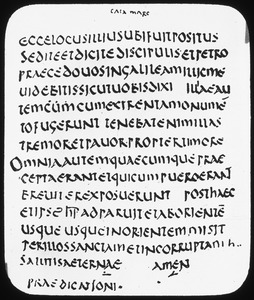 CATA MARC
ECCELOCUSILLIUSUBIFUITPOSITUS
SEDITEETDICITEDISCIPULISETPETRO
PRAECEDOUOSINGALILEAMILLICME
UIDEBITISSICUTUOBISDIXI ILLAEAU
TEMCŪMCUMEXIRENTAMONUMĒ
TOFUGERUNT TENEBATENIMILLAS
TREMORETPAUORPROPTERTIMORE
OMNIAAUTEMQUAECUMQUEPRAE
CEPTAERANTETQUICUMPUEROERANT
BREUITEREXPOSUERUNT POSTHAEC
ETIPSE ADPARUITETABORIENTE
USQUEUSQUEINORIENTEMMISIT
PERILLOSSANCTAMETINCORRUPTAMH..
SALUTISAETERNAE AMEN
PRAEDICATIONI·